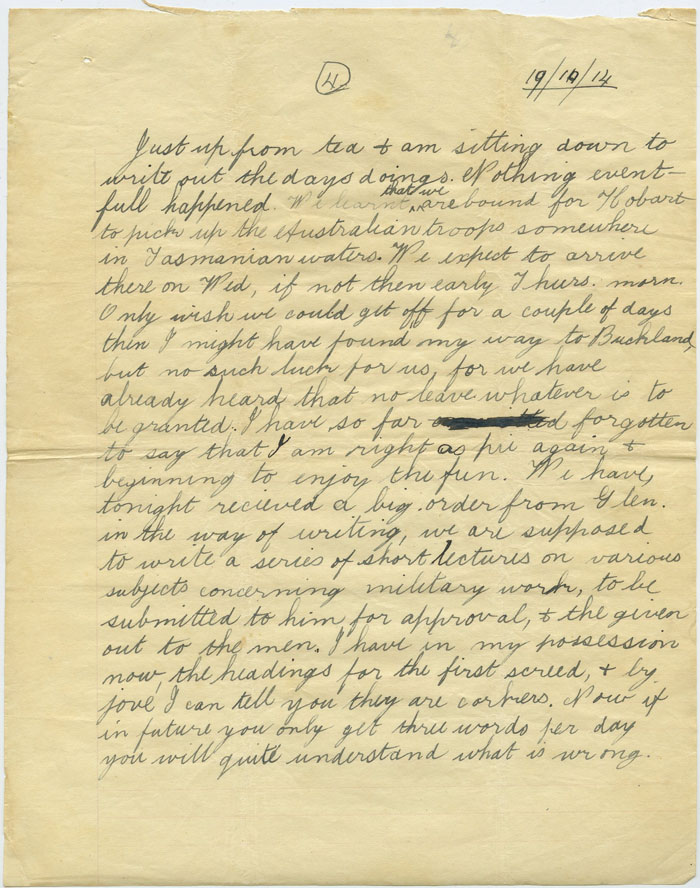 4
19/10/14
Just up from tea & am sitting down to
write out the days doings. Nothing event-
full happened. We learnt that we are bound for Hobart
to pick up the Australian troops somewhere
in Tasmanian waters. We expect to arrive
there on Wed, if not then early Thurs. morn.
Only wish we could get off for a couple of days
then I might have found my way to Buckland,
but no such luck for us, for we have
already heard that no leave whatever is to
be granted. I have so far forgotten
to say that I am right as pie again &
beginning to enjoy the fun. We have,
tonight recieved a big order from Glen.
in the way of writing, we are supposed
to write a series of short lectures on various
subjects concerning military work, to be
submitted to him for approval, & the given
out to the men. I have in my possession
now, the headings for the first screed, & by
jove I can tell you they are corkers. Now if
in future you only get three words per day
you will quite understand what is wrong.